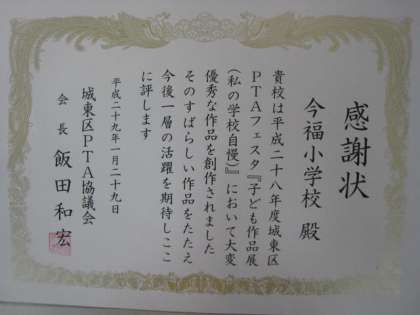 感謝状
今福小学校 殿
貴校は平成二十八年度城東区
PTAフェスタ『子ども作品展
(私の学校自慢)』において大変
優秀な作品を創作されました
そのすばらしい作品をたたえ
今後一層の活躍を期待しここ
に評します
平成二十九年一月二十九日
城東区PTA協議会
会長 飯田和宏